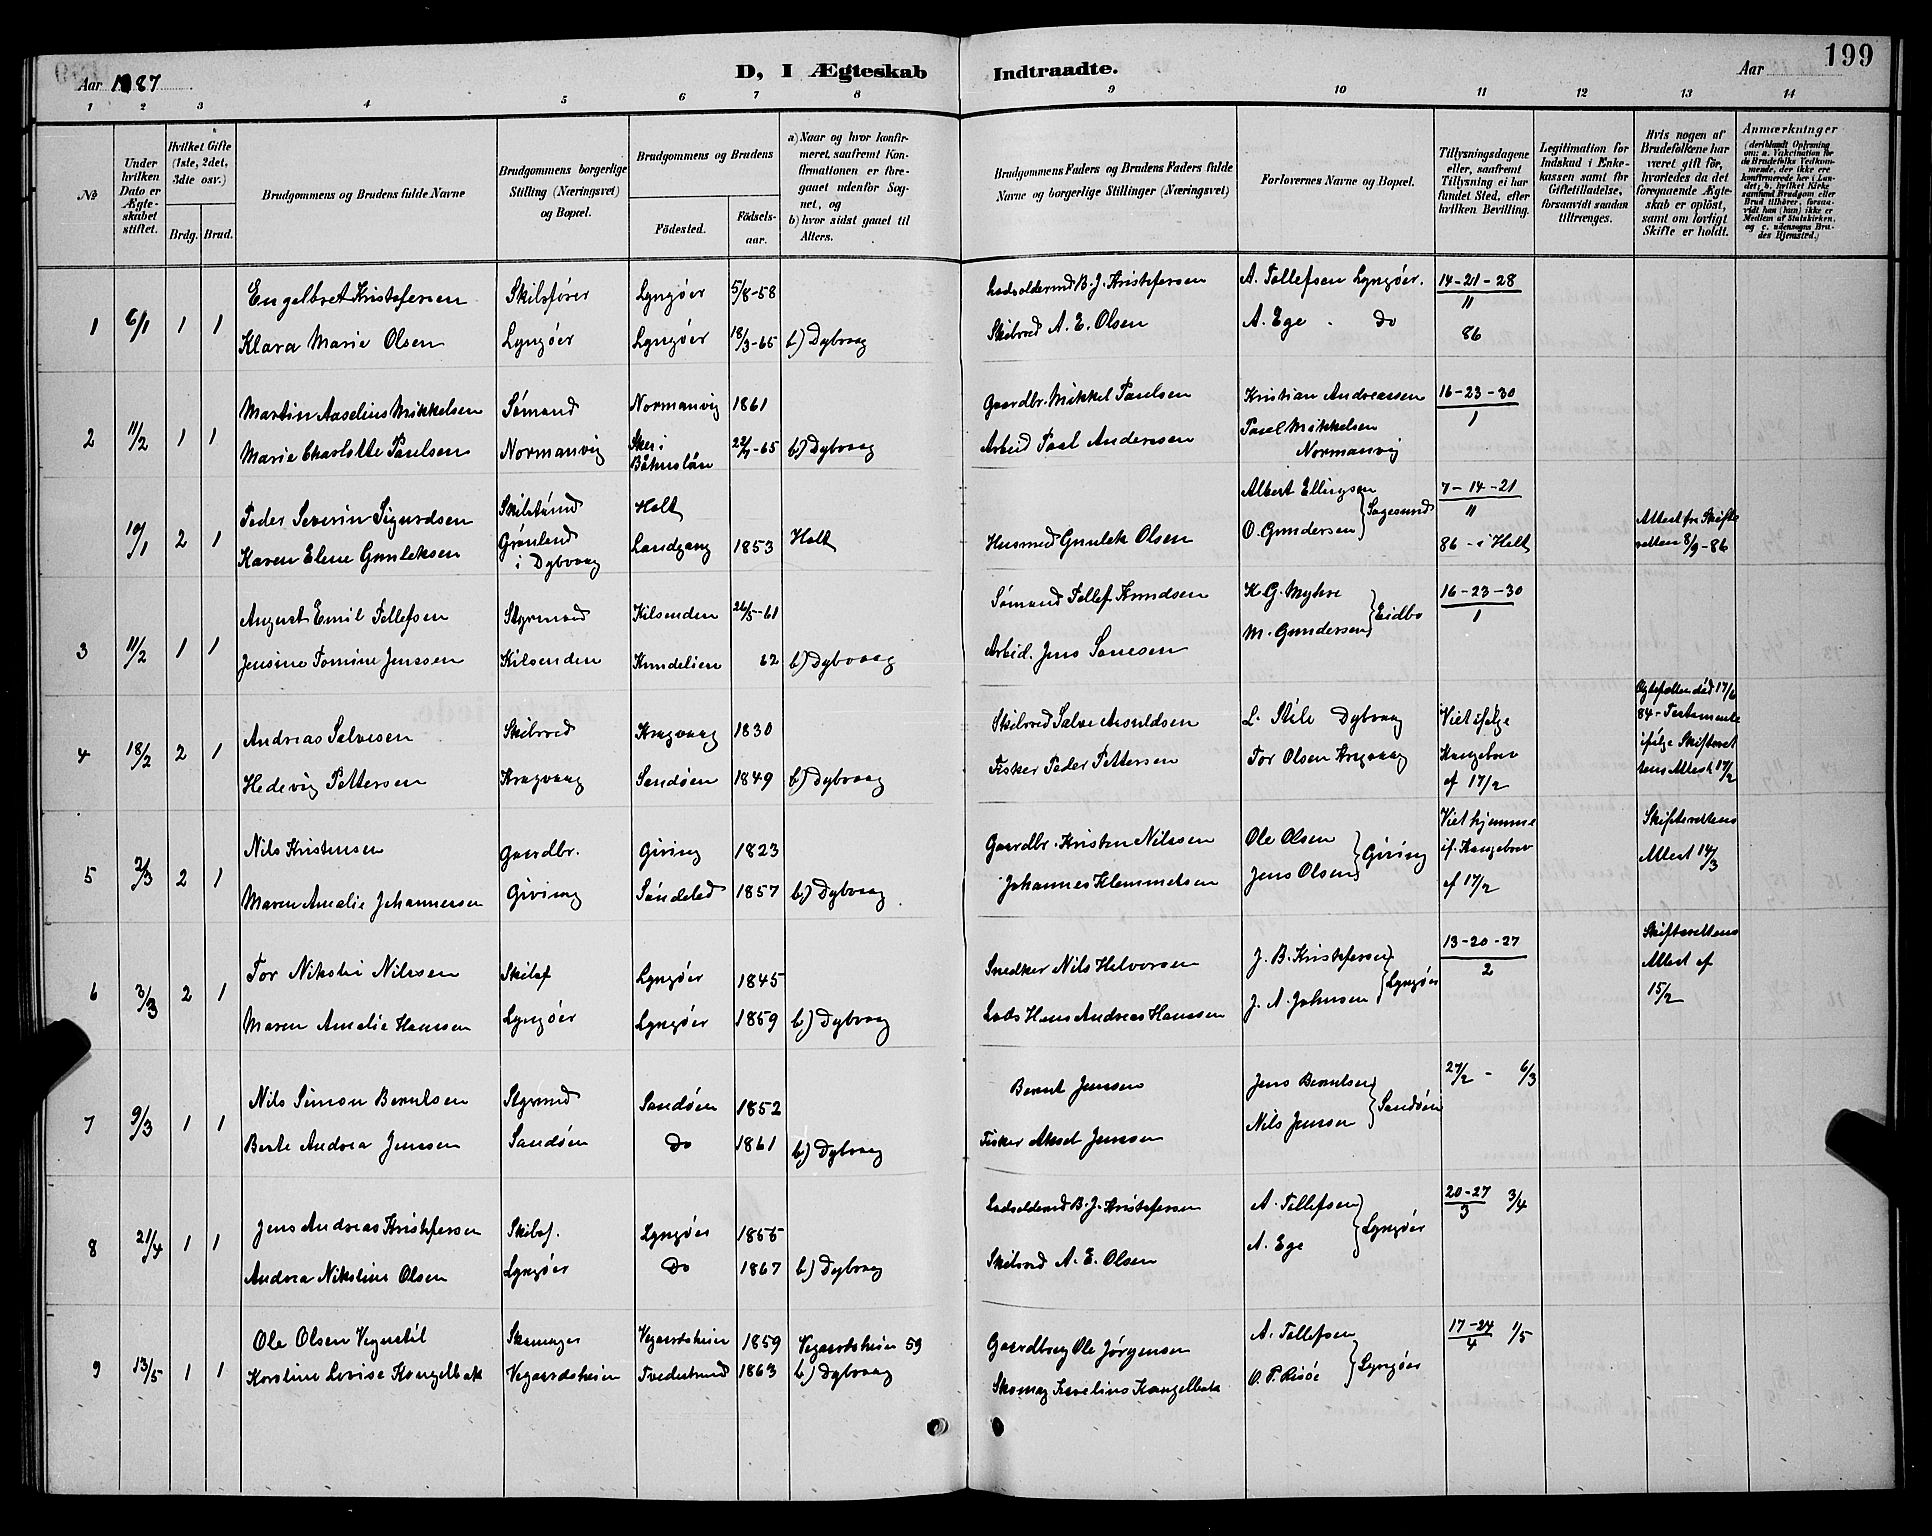 Aar 1887
D, I Ægteskab Indtraadte.
Aar
199
1 2 3 4 5 6 7 8 9 10 11 12 13 14
No
Under hvilken Dato er Ægteskabet stiftet.
Hvilket Gifte (1ste, 2det, 3die osv.)
Brdg. Brud.
Brudgommens og Brudens fulde Navne
Brudgommens borgerlige Stilling (Næringsvei) og Bopæl.
Brudgommens og Brudens
Födested.
Födselsaar.
a) Naar og hvor konfirmeret, saafremt Konfirmationen er foregaaet udenfor Sognet, og
b) hvor sidst gaaet til Alters.
Brudgommens Faders og Brudens Faders fulde Navne og borgerlige Stillinger (Næringsvei)
Forlovernes Navne og Bopæl.
Tillysningsdagene eller, saafremt Tillysning ei har fundet Sted, efter hvilken Bevilling.
Legitimation for Indskud i Enkekassen samt for Giftetilladelse, forsaavidt saadan tiltrænges.
Hvis nogen af Brudefolkene har været gift før, hvorledes da det foregaaende Ægteskab er oplöst, samt om lovligt Skifte er holdt.
Anmærkninger (deriblandt Oplysning om: a. Vakcination for de Brudefolks Vedkommende, der ikke ere konfirmerede her i Landet; b. hvilket Kirkesamfund Brudgom eller Brud tilhörer, forsaavidt han (hun) ikke er Medlem af Statskirken, og c. udensogns Brudes Hjemsted.)
1 6/1 1 1 Engelbret Kristofersen Skibsfører Lyngøer 5/8-58 Lodsoldermd B. J. Kristofersen A. Tellefsen Lyngøer. 14-21-28
Klara Marie Olsen Lyngøer Lyngøer 18/3-65 b) Dybvaag Skibred A. E. Olsen A. Ege - Do 11 86
2 11/2 1 1 Martin Aaselius Mikkelsen Sømand Normanvig 1861 Gaardbr. Mikkel Paulsen Kristian Andreassen 16-23-30
Marie Charlotte Paulsen Normanvig Båhuslän 22/7-65 b) Dybvaag Arbeid Paal Andersen Paul Mikkelsen Normanvig 1
10/1 2 1 Peder Severin Sigurdsen Holt Albert Ellingsen 7-14-21
Karen Elene Gunleksen Grønland i Dybvaag Landgang 1853 Holt Husmd Gunlek Olsen O. Gundersen Sagesund 11 86 - i Holt Attest fra Skifteretten 8/9-86
3 11/2 1 1 August Emil Tellefsen Styrmand Kilsenden 26/5-61 Sømand Tellef Knudsen K. G. Myhre 16-23-30
Jensine Tomine Jenssen Kilsenden 62 b) Dybvaag Arbeid. Jens M. Gundersen Eidbo 1
4 18/2 2 1 Andreas Salvesen Skibred Kragvaag 1830 Skibred Salve Arnuldsen L. Stile Dybvaag Viet ifølge 84 - Testamente
Hedevig Pettersen Kragvaag Sandøen 1849 b) Dybvaag Fisker Peder Pettersen Tor Olsen Kragvaag Kongebrev af 17/2 ifølge Skifterettens Attest 17/2
5 2/3 2 1 Nils Kristensen Gaardbr. Giving 1823 Gaardbr. Kristen Nilssen Ole Olsen Viet hjemme Skifterettens
Maren Amalie Johannessen Giving Søndeled 1857 b) Dybvaag Johannes Klemmetsen Jens Olsen Giving if. Kongebrev af 17/2 Attest 14/3
6 3/3 2 1 Tor Nikolai Nilssen Skibsf Lyngøer 1845 Snedker Nils Halvorsen J. B. Kristofersen 13-20-27 Skifterettens
Maren Amalie Hanssen Lyngøer Lyngøer 1859 b) Dybvaag Lods Hans Andreas Hanssen J. A. Johnsen Lyngøer 2 Attest af 15/2
7 9/3 1 1 Nils Simon Berntsen Styrmd Sandøen 1852 Bernt Jenssen Jens Berntsen 27/2 - 6/3
Berte Andrea Jenssen Sandøen Do 1861 b) Dybvaag Fisker Aksel Jenssen Nils Jensen Sandøen
8 21/4 1 1 Jens Andreas Kristofersen Skibsf. Lyngøer 1855 Lodsoldermd B. J. Kristofersen A. Tellefsen 20-27 3/4
Andrea Nikoline Olsen Lyngøer Do 1867 b) Dybvaag Skibred A. E. Olsen A. Ege Lyngøer 3
9 13/5 1 1 Ole Olsen Vegerstøl Skomager Vegaardsheien 1859 Vegaardsheien 59 Gaardbrug Ole Jørgensen A. Tellefsen 17-24 1/5
Karoline Lovise Kongelbæk Vegaardsheien Tvedestrand 1863 b) Dybvaag Skomag O. T. Risøe Lyngøer 4